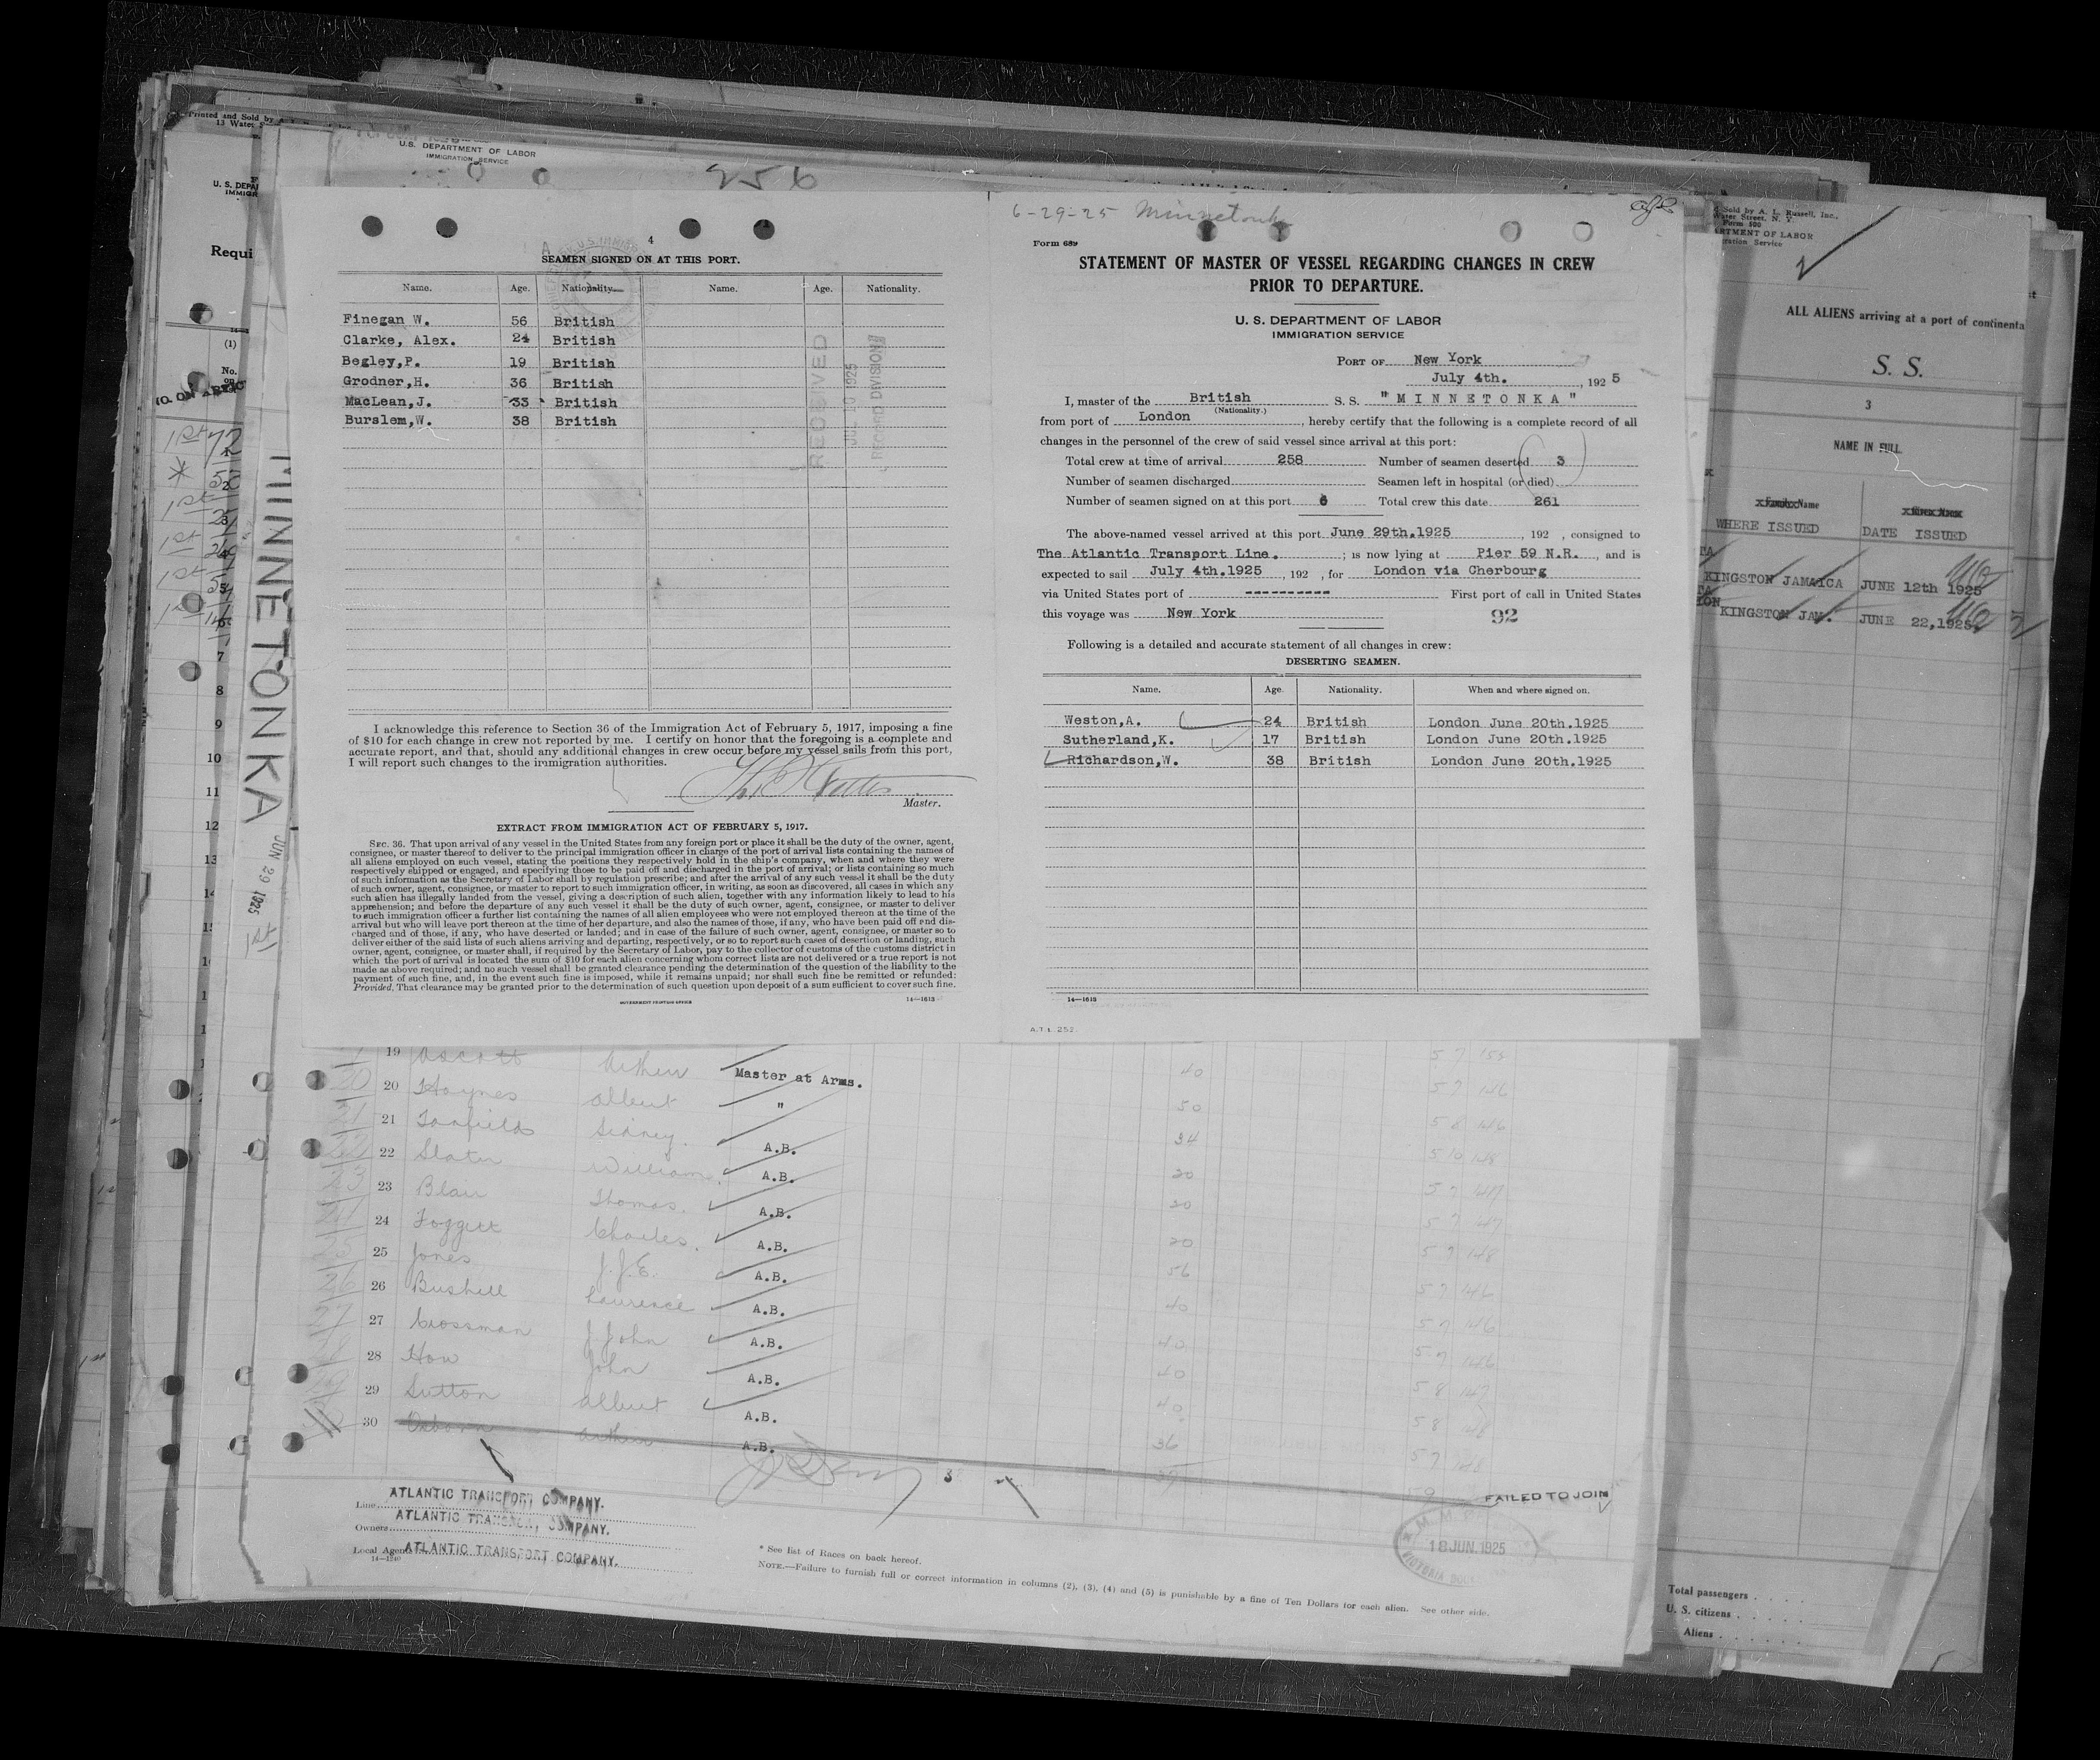 Printed and Sold by
13 Water
U.S. DEPARTMENT OF LABOR
IMMIGRATION SERVICE
U. S. DEPA
IMMIGR
Requi
(1)
No.
on
256
MINNETONKA
JUN 29 1925
4
SEAMEN SIGNED ON AT THIS PORT.
Name. Age. Nationality. Name. Age. Nationality.
Finegan W. 56 British
Clarke, Alex. 24 British
Begley,P. 19 British
Grodner,H. 36 British
MacLean,J. 33 British
Burslem,W. 38 British
RECEIVED
JUL 10 1925
RECORD DIVISION
I acknowledge this reference to Section 36 of the Immigration Act of February 5, 1917, imposing a fine
of $10 for each change in crew not reported by me. I certify on honor that the foregoing is a complete and
accurate report, and that, should any additional changes in crew occur before my vessel sails from this port,
I will report such changes to the immigration authorities.
Master.
EXTRACT FROM IMMIGRATION ACT OF FEBRUARY 5, 1917.
SEC. 36. That upon arrival of any vessel in the United States from any foreign port or place it shall be the duty of the owner, agent,
consignee, or master thereof to deliver to the principal immigration officer in charge of the port of arrival lists containing the names of
all aliens employed on such vessel, stating the positions they respectively hold in the ship's company, when and where they were
respectively shipped or engaged, and specifying those to be paid off and discharged in the port of arrival; or lists containing so much
of such information as the Secretary of Labor shall by regulation prescribe; and after the arrival of any such vessel it shall be the duty
of such owner, agent, consignee, or master to report to such immigration officer, in writing, as soon as discovered, all cases in which any
such alien has illegally landed from the vessel, giving a description of such alien, together with any information likely to lead to his
apprehension; and before the departure of any such vessel it shall be the duty of such owner, agent, consignee, or master to deliver
to such immigration officer a further list containing the names of all alien employees who were not employed thereon at the time of the
arrival but who will leave port thereon at the time of her departure, and also the names of those, if any, who have been paid off and dis-
charged and of those, if any, who have deserted or landed; and in case of the failure of such owner, agent, consignee, or master so to
deliver either of the said lists of such aliens arriving and departing, respectively, or so to report such cases of desertion or landing, such
owner, agent, consignee, or master shall, if required by the Secretary of Labor, pay to the collector of customs of the customs district in
which the port of arrival is located the sum of $10 for each alien concerning whom correct lists are not delivered or a true report is not
made as above required; and no such vessel shall be granted clearance pending the determination of the question of the liability to the
payment of such fine, and, in the event such fine is imposed, while it remains unpaid; nor shall such fine be remitted or refunded:
Provided, That clearance may be granted prior to the determination of such question upon deposit of a sum sufficient to cover such fine.
GOVERNMENT PRINTING OFFICE 14—1613
6-29-25 Minnetonka
Form 689
STATEMENT OF MASTER OF VESSEL REGARDING CHANGES IN CREW
PRIOR TO DEPARTURE.
U. S. DEPARTMENT OF LABOR
IMMIGRATION SERVICE
PORT OF New York
July 4th. , 192 5
I, master of the British S. S. "MINNETONKA"
(Nationality.)
from port of London , hereby certify that the following is a complete record of all
changes in the personnel of the crew of said vessel since arrival at this port:
Total crew at time of arrival 258 Number of seamen deserted 3
Number of seamen discharged Seamen left in hospital (or died)
Number of seamen signed on at this port 6 Total crew this date 261
The above-named vessel arrived at this port June 29th.1925 , 192 , consigned to
The Atlantic Transport Line. ; is now lying at Pier 59 N.R. , and is
expected to sail July 4th.1925 , 192 , for London via Cherbourg
via United States port of ---------- First port of call in United States
this voyage was New York 92
Following is a detailed and accurate statement of all changes in crew:
DESERTING SEAMEN.
Name. Age. Nationality. When and where signed on.
Weston,A. 24 British London June 20th.1925
Sutherland,K. 17 British London June 20th.1925
Richardson,W. 38 British London June 20th.1925
14—1613
A.T.L. 252.
Sold by A. L. Russell, Inc.,
Water Street, N. Y.
Form 500
ARTMENT OF LABOR
gration Service
ALL ALIENS arriving at a port of continenta
S. S.
3
NAME IN FULL
Family Name
WHERE ISSUED DATE ISSUED
KINGSTON JAMAICA JUNE 12th 1925
KINGSTON JAM. JUNE 22,1925
Total passengers
U. S. citizens
Aliens
19 Ascott Arthur Master at Arms. 40
20 Haynes Albert " 50
21 Tanfield Sidney. A.B. 34
22 Slater William A.B. 20
23 Blair Thomas. A.B. 20
24 Foggitt Charles. A.B. 20
25 Jones J.J.E. A.B. 56
26 Bushell Laurence A.B. 40
27 Crossman J John A.B. 40
28 How John A.B. 40
29 Sutton Albert A.B. 40
30 Osborn Arthur A.B. 36
3
FAILED TO JOIN
Line ATLANTIC TRANSPORT COMPANY.
Owners ATLANTIC TRANSPORT COMPANY.
Local Agents ATLANTIC TRANSPORT COMPANY.
14—1240
* See list of Races on back hereof.
NOTE.—Failure to furnish full or correct information in columns (2), (3), (4) and (5) is punishable by a fine of Ten Dollars for each alien. See other side.
18 JUN.1925
VICTORIA DOCK